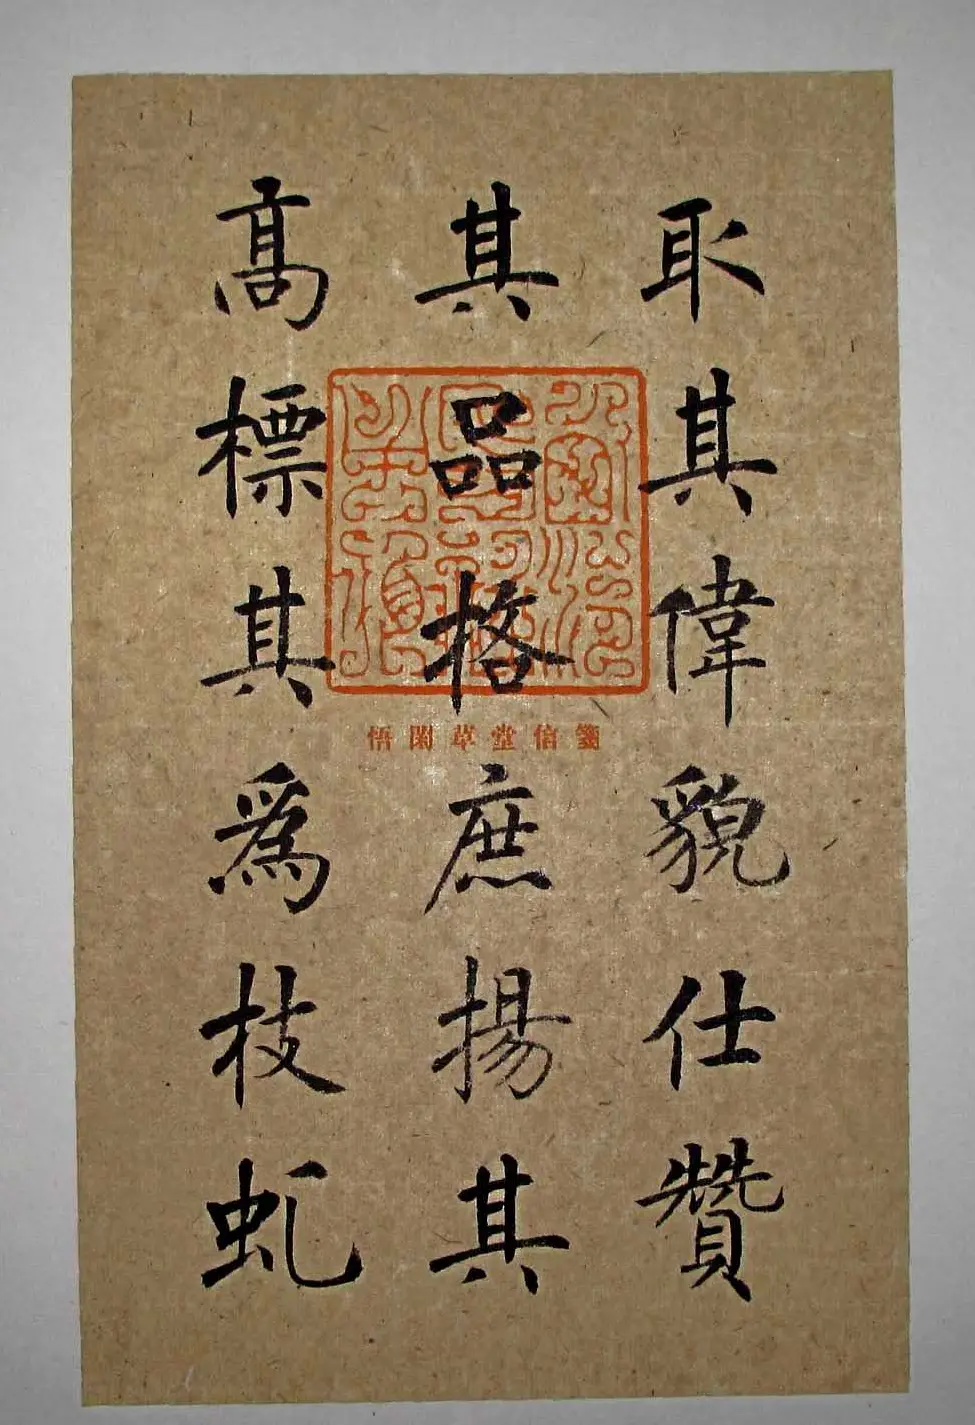 取其偉貌仕贊
其品格庶揚其
高標其為枝虬
悟閑草堂信箋